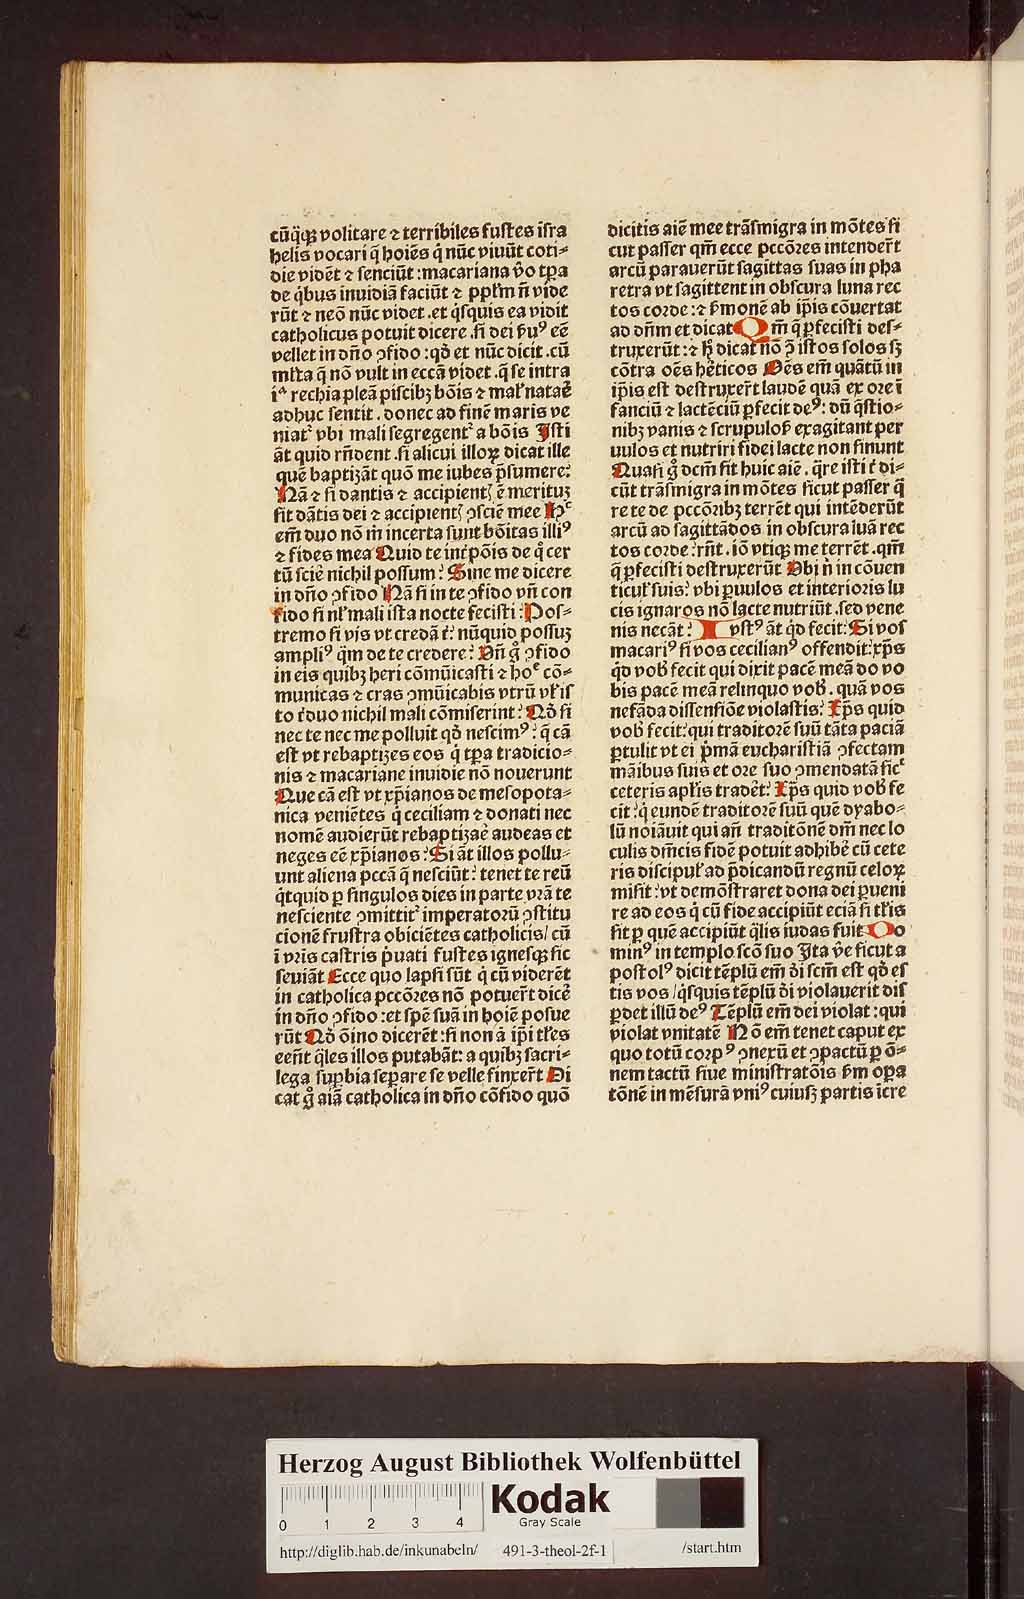 cūq̄ꝫ volitare ⁊ terribiles fustes isra
helis vocari q̄ hoīes q̇ nūc viuūt coti⸗
die vidēt ⁊ senciūt : macariana v̊o tꝑa
de q̇bus inuidiā faciūt ⁊ ppl̄m n̄ vide
rūt ⁊ neō nūc videt . et q̇squis ea vidit
catholicus potuit dicere . si dei ẜuꝰ eē
vellet in dn̄o ꝯfido : qd̛ et nūc dicit . cū
ml̄ta q̄ nō vult in eccā videt . q̄ se intra
iᵃ rechia pleā piscibꝫ bōis ⁊ mal̛ nataē
adhuc sentit . donec ad finē maris ve
niatᷣ vbi mali segregentᷣ a bōis Isti
āt quid rn̄dent . si alicui illoꝝ dicat ille
quē baptizāt quō me iubes p̄sumere:
Nā ⁊ si dantis ⁊ accipientꝭ ē meritū
sit dātis dei ⁊ accipientꝭ ꝯsciē mee Hᶜ
em̄ duo nō m̄ incerta sunt bōitas illiꝰ
⁊ fides mea Quid te int̛pōis de q̊ cer
tū scie nichil possum : Sine me dicere
in dn̄o ꝯfido Nā si in te ꝯfido vn̄ con
fido si nl̛ mali ista nocte fecisti : Pos⸗
tremo si vis vt credā t̛ : nūquid possū
ampliꝰ q̄m de te credere : Vn̄ g̊ ꝯfido
in eis quibꝫ heri cōmūicasti ⁊ hoᵉ cō⸗
municas ⁊ cras ꝯmūicabis vtrū vl̛ is
to t̛duo nichil mali cōmiserint : Qd̛ si
nec te nec me polluit qd̛ nescimꝰ : q̄ cā
est vt rebaptizes eos q̇ tꝑa tradicio⸗
nis ⁊ macariane inuidie nō nouerunt
Que cā est vt xp̄ianos de mesopota⸗
nica veniētes q̇ ceciliam ⁊ donati nec
nomē audierūt rebaptizaē audeas et
neges eē xp̄ianos : Si āt illos pollu⸗
unt aliena pccā q̄ nesciūt : tenet te reū
q̇tquid ꝑ singulos dies in parte vrā te
nesciente ꝯmittitᷣ imperatorū ꝯstitu
cionē frustra obiciētes catholicis / cū
ī vris castris p̛uati fustes ignesqꝫ sic
seuiāt Ecce quo lapsi sūt q̇ cū viderēt
in catholica pccōres nō potuer̄t dicē
in dn̄o ꝯfido : et spē suā in hoīe posue
rūt Qd̛ ōino dicerēt : si non ā ip̄i tl̛es
een̄t q̄les illos putabāt : a quibꝫ sacri⸗
lega suꝑbia seꝑare se velle finxer̄t Di
cat g̊ aīa catholica in dn̄o cōfido quō
dicitis aīe mee trāsmigra in mōtes si
cut passer qm̄ ecce pccōres intender̄t
arcū parauerūt sagittas suas in pha
retra vt sagittent in obscura luna rec
tos corde : ⁊ ẜmonē ab ip̄is cōuertat
ad dn̄m et dicat Qm̄ q̄ ꝑfecisti des⸗
truxerūt : ⁊ hͦ dicat nō ꝯ istos solos sꝫ
cōtra oēs hēticos Oēs em̄ quātū in
ip̄is est destruxer̄t laudē quā ex ore ī
fanciū ⁊ lactēciū ꝑfecit deꝰ : dū q̄stio⸗
nibꝫ vanis ⁊ scrupulos̛ exagitant per
uulos et nutriri fidei lacte non sinunt
Quasi g̊ dcm̄ sit huic aīe . q̄re isti t̛ di⸗
cūt trāsmigra in mōtes sicut passer q̄
re te de pccōribꝫ terrēt qui intēderūt
arcū ad sagittādos in obscura luā rec
tos corde : rn̄t . iō vtiqꝫ me terrēt . qm̄
q̄ ꝑfecisti destruxerūt Vbi n̄ in cōuen
ticul̛ suis : vbi ꝑuulos et interioris lu
cis ignaros nō lacte nutriūt . sed vene
nis necāt : Iustꝰ āt qd̛ fecit : Si vos
macariꝰ si vos cecilianꝰ offendit : xp̄s
qd̛ vob̛ fecit qui dixit pacē meā do vo
bis pacē meā relinquo vob̛ . quā vos
nefāda dissensiōe violastis : Xp̄s quid
vob̛ fecit : qui traditorē suū tāta paciā
ꝑtulit vt ei p̛mā eucharistiā ꝯfectam
māibus suis et ore suo ꝯmendatā sicᵗ
ceteris apl̛is tradēt : Xp̄s quid vob̛ fe
cit : q̇ eundē traditorē suū quē dyabo⸗
lū noīauit qui an̄ traditōnē dm̄ nec lo
culis dm̄cis fidē potuit adhibē cū cete
ris discipul̛ ad p̄dicandū regnū celoꝝ
misit : vt demōstraret dona dei ꝑueni
re ad eos q̇ cū fide accipiūt eciā si tl̛is
sit ꝑ quē accipiūt q̄lis iudas fuit Do
minꝰ in templo scō suo Ita v̊e sicut a
postolꝰ dicit tēplū em̄ di̛ scm̄ est qd̛ es
tis vos / q̇squis tēplū di̛ violauerit dis
ꝑdet illū deꝰ Tēplū em̄ dei violat : qui
violat vnitatē Nō em̄ tenet caput ex
quo totū corpꝰ ꝯnexū et ꝯpactū ꝑ ō⸗
nem tactū siue ministratōis ẜm oꝑa
tōnē in mēsurā vniꝰ cuiusqꝫ partis īcre
Herzog August Bibliothek Wolfenbüttel
0 1 2 3 4
Kodak
Gray Scale
http://diglib.hab.de/inkunabeln/ 491-3-theol-2f-1 /start.htm